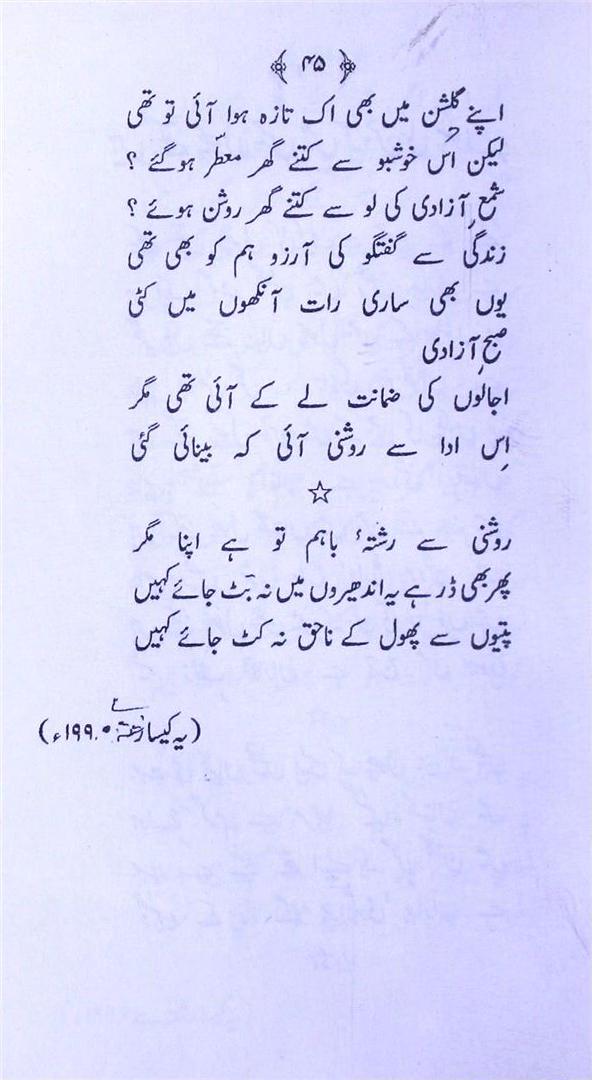 ۴۵
اپنے گلشن میں بھی اک تازہ ہوا آئی تو تھی
لیکن اس خوشبو سے کتنے گھر معطّر ہوگئے ؟
شمعِ آزادی کی لو سے کتنے گھر روشن ہوئے ؟
زندگی سے گفتگو کی آرزو ہم کو بھی تھی
یوں بھی ساری رات آنکھوں میں کٹی
صبحِ آزادی
اجالوں کی ضمانت لے کے آئی تھی مگر
اِس ادا سے روشنی آئی کہ بینائی گئی
☆
روشنی سے رشتۂ باہم تو ہے اپنا مگر
پھر بھی ڈر ہے یہ اندھیروں میں نہ بَٹ جائے کہیں
پتیوں سے پھول کے ناحق نہ کٹ جائے کہیں
(یہ کیسا رشتہ ۱۹۹۰ء)